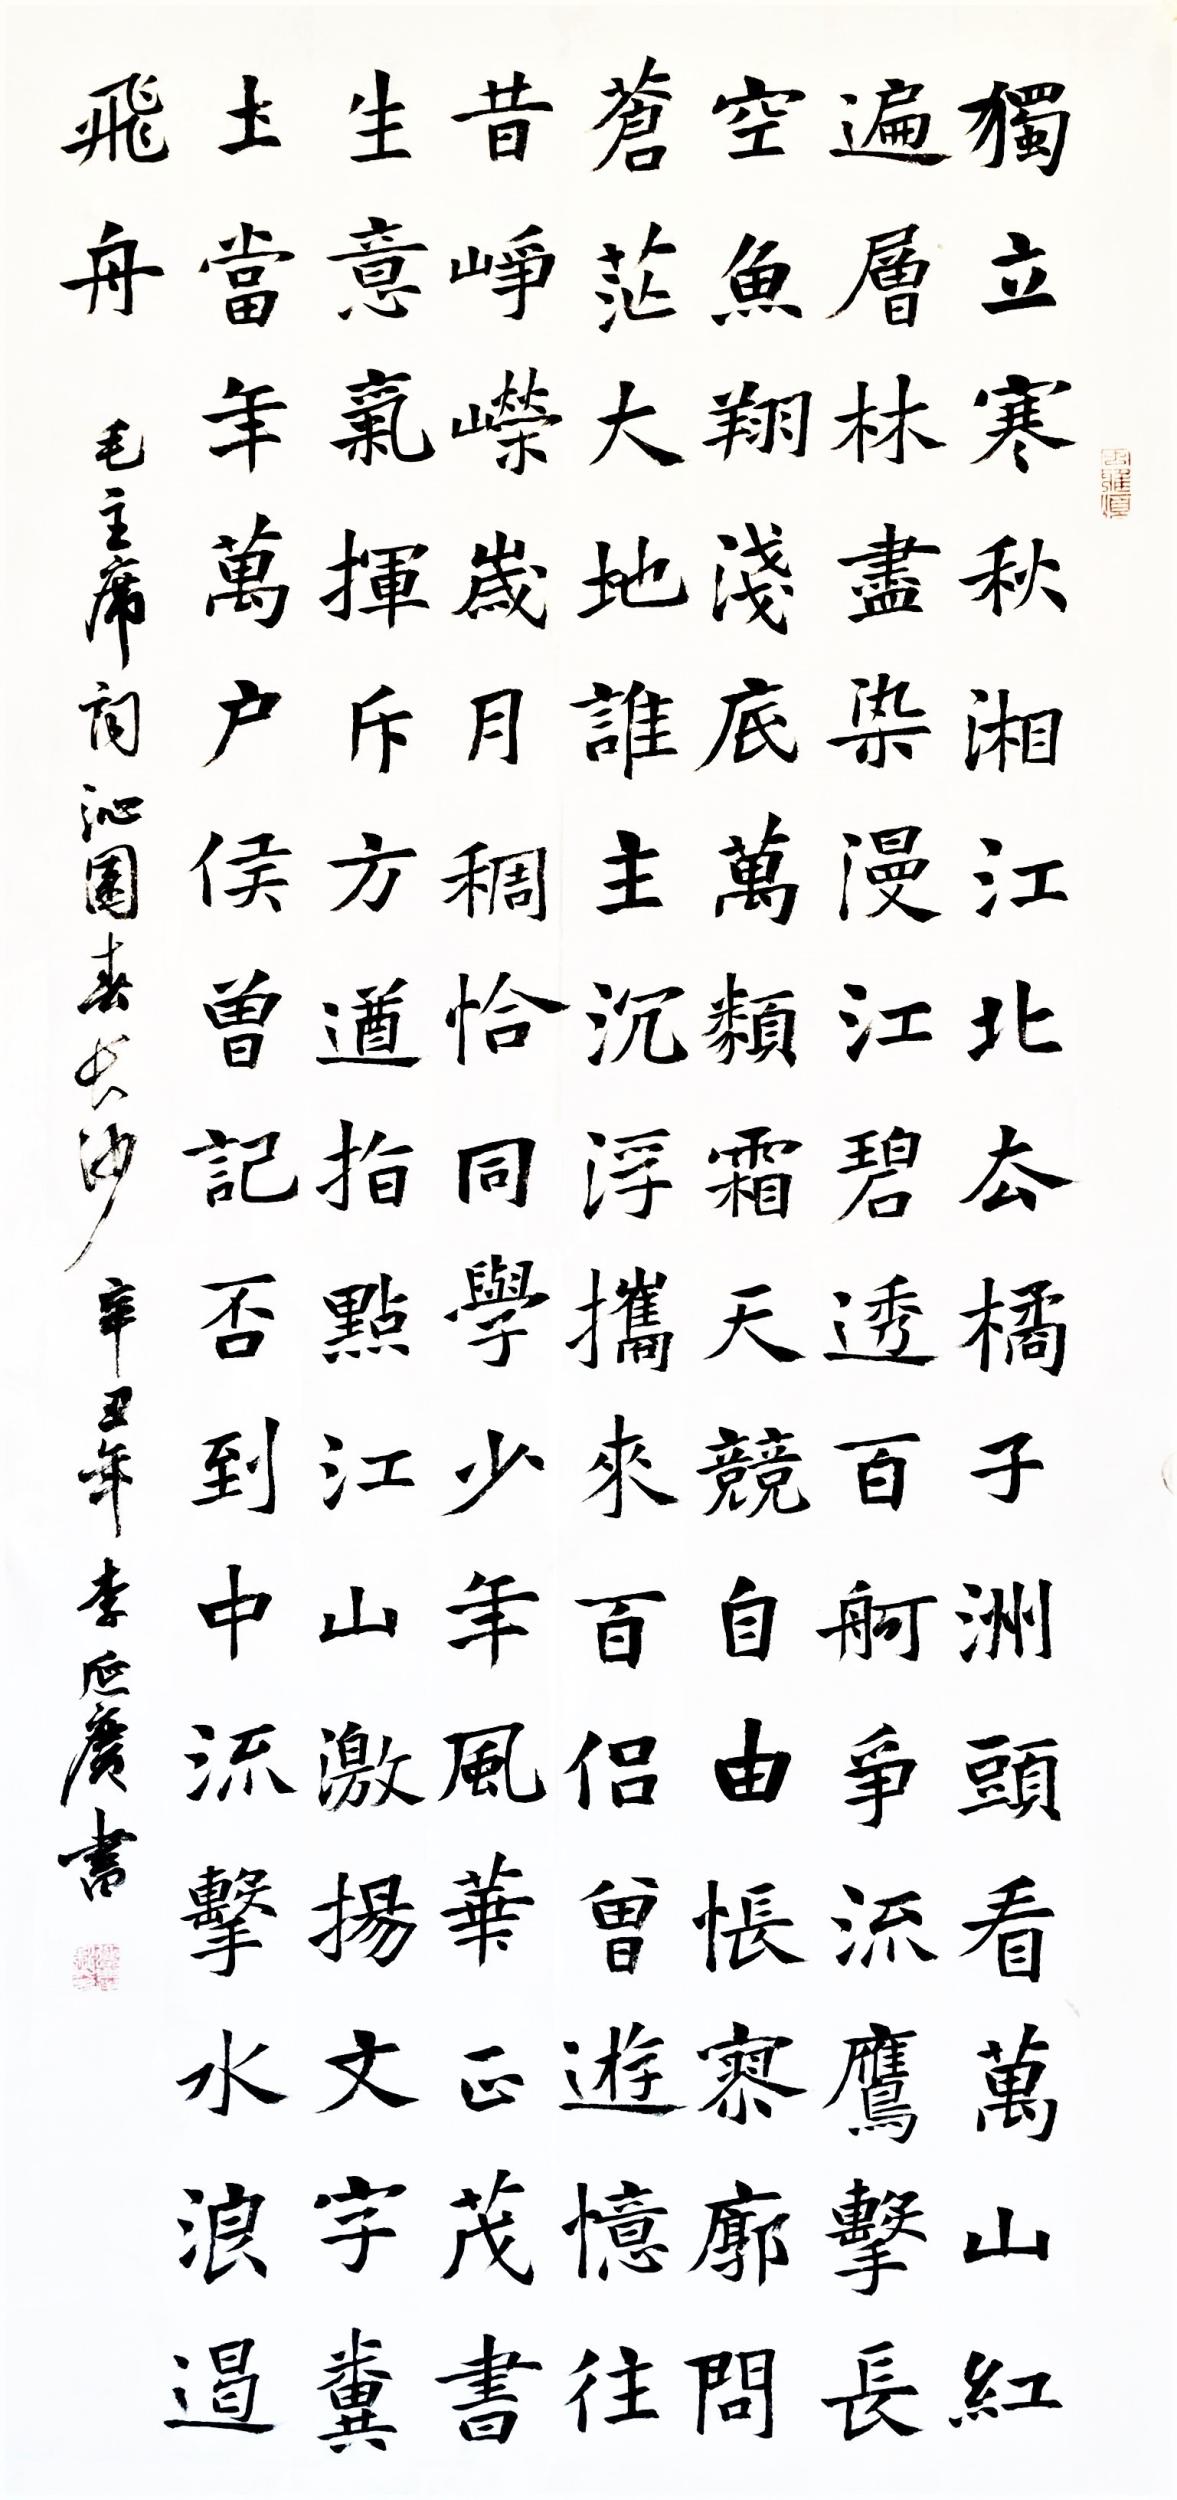 獨立寒秋湘江北去橘子洲頭看萬山紅
遍層林盡染漫江碧透百舸爭流鷹擊長
空魚翔淺底萬類霜天競自由悵寥廓問
蒼茫大地誰主沉浮攜來百侶曾遊憶往
昔崢嶸歲月稠恰同學少年風華正茂書
生意氣揮斥方遒指點江山激揚文字糞
土當年萬户侯曾記否到中流擊水浪遏
飛舟 毛主席詞沁園春長沙 辛丑年李延廣書